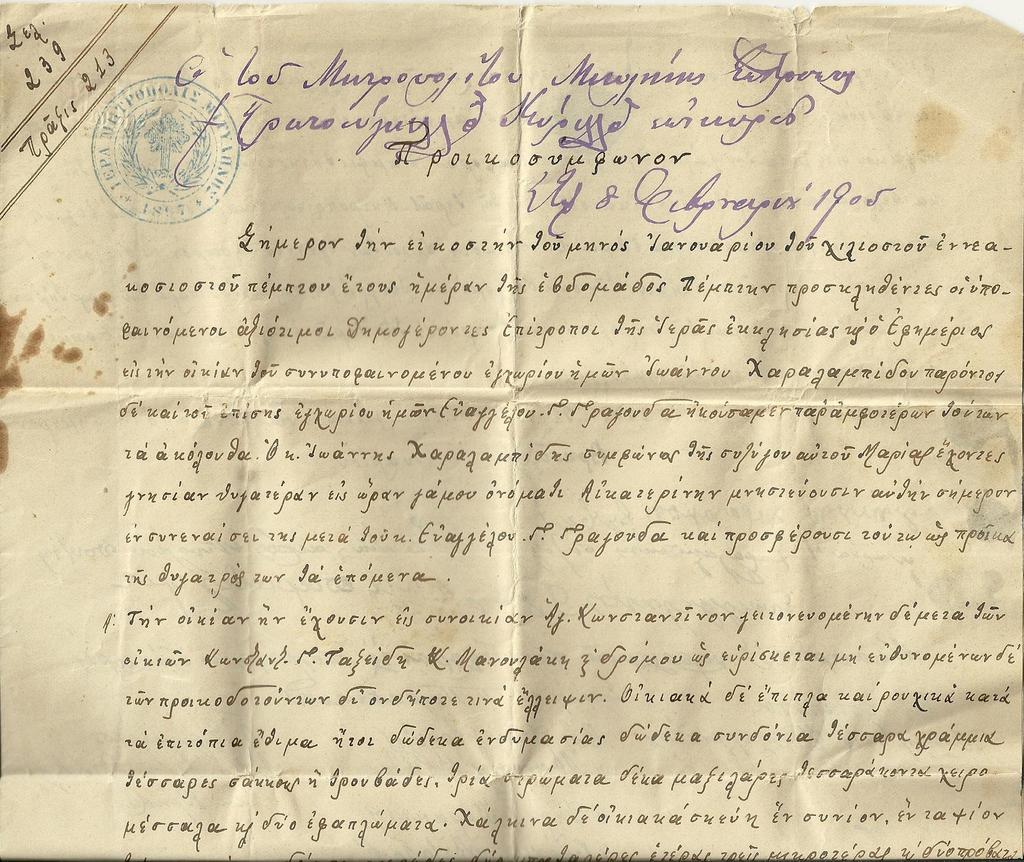 Σελ.
239
Πρᾶξις 213
ΙΕΡΑ ΜΗΤΡΟΠΟΛΙΣ ΜΥΤΙΛΗΝΗΣ
1897
Ὁ τοῦ Μητροπολίτου Μυτιλήνης
Πρωτοσύγκελλος Κύριλλος ἐπικυροῖ
Προικοσύμφωνον
τῇ 8 Φεβρουαρίου 1905
Σήμερον τήν εἰκοστήν τοῦ μηνός Ἰανουαρίου τοῦ χιλιοστοῦ ἐννεα-
κοσιοστοῦ πέμπτου ἔτους ἡμέραν τῆς ἑβδομάδος Πέμπτην προσκληθέντες οἱ ὑπο-
φαινόμενοι ἀξιότιμοι Δημογέροντες Ἐπίτροποι τῆς Ἱερᾶς ἐκκλησίας κ ὁ Ἐφημέριος
εἰς τήν οἰκίαν τοῦ συνυποφαινομένου ἐγχωρίου ἡμῶν Ἰωάννου Χαραλαμπίδου παρόντος
δέ καί τοῦ ἐπίσης ἐγχωρίου ἡμῶν Εὐαγγέλου Γ. Γραγουδα ἠκούσαμεν παρ' ἀμφοτέρων τούτων
τά ἀκόλουθα. Ὁ κ. Ἰωάννης Χαραλαμπίδης συμφώνως τῆς συζύγου αὐτοῦ Μαρίας ἔχοντες
γνησίαν θυγατέραν εἰς ὥραν γάμου ὀνόματι Αἰκατερίνην μνηστεύουσιν αὐτήν σήμερον
ἐν συνεναίσει της μετά τοῦ κ. Εὐαγγέλου Γ. Γραγουδα καί προσφέρουσι τούτω ὡς προῖκα
τῆς θυγατρός των τά ἑπόμενα.
Τήν οἰκίαν ἥν ἔχουσιν εἰς συνοικίαν Ἁγ. Κωνσταντῖνον γειτονευομένην δέ μετά τῶν
οἰκιῶν Κωνσταντ. Γ. Ταξείδη Κ. Μανουλάκη ξ δρόμου ὡς εὑρίσκεται μή εὐθυνομένων δέ
τῶν προικοδοτούντων δι' ονδήποτε τινά ἔλλειψιν. Οἰκιακά δέ ἔπιπλα καί ρουχικά κατά
τά ἐπιτόπια ἔθιμα ἤτοι δώδεκα ἐνδυμασίας δώδεκα συνδόνια τέσσαρα χράμμια
τέσσαρες σάκκους ἤ τρουβάδες, τρία στρώματα δέκα μαξιλάρες τεσσαράκοντα χειρο
μέσσαλα κ δύο ἐφαπλώματα. Χάλκινα δέ οἰκιακά σκεύη ἕν συνίον, ἕν ταψίον
ἑτέρας τρεῖς μικροτέρας κ